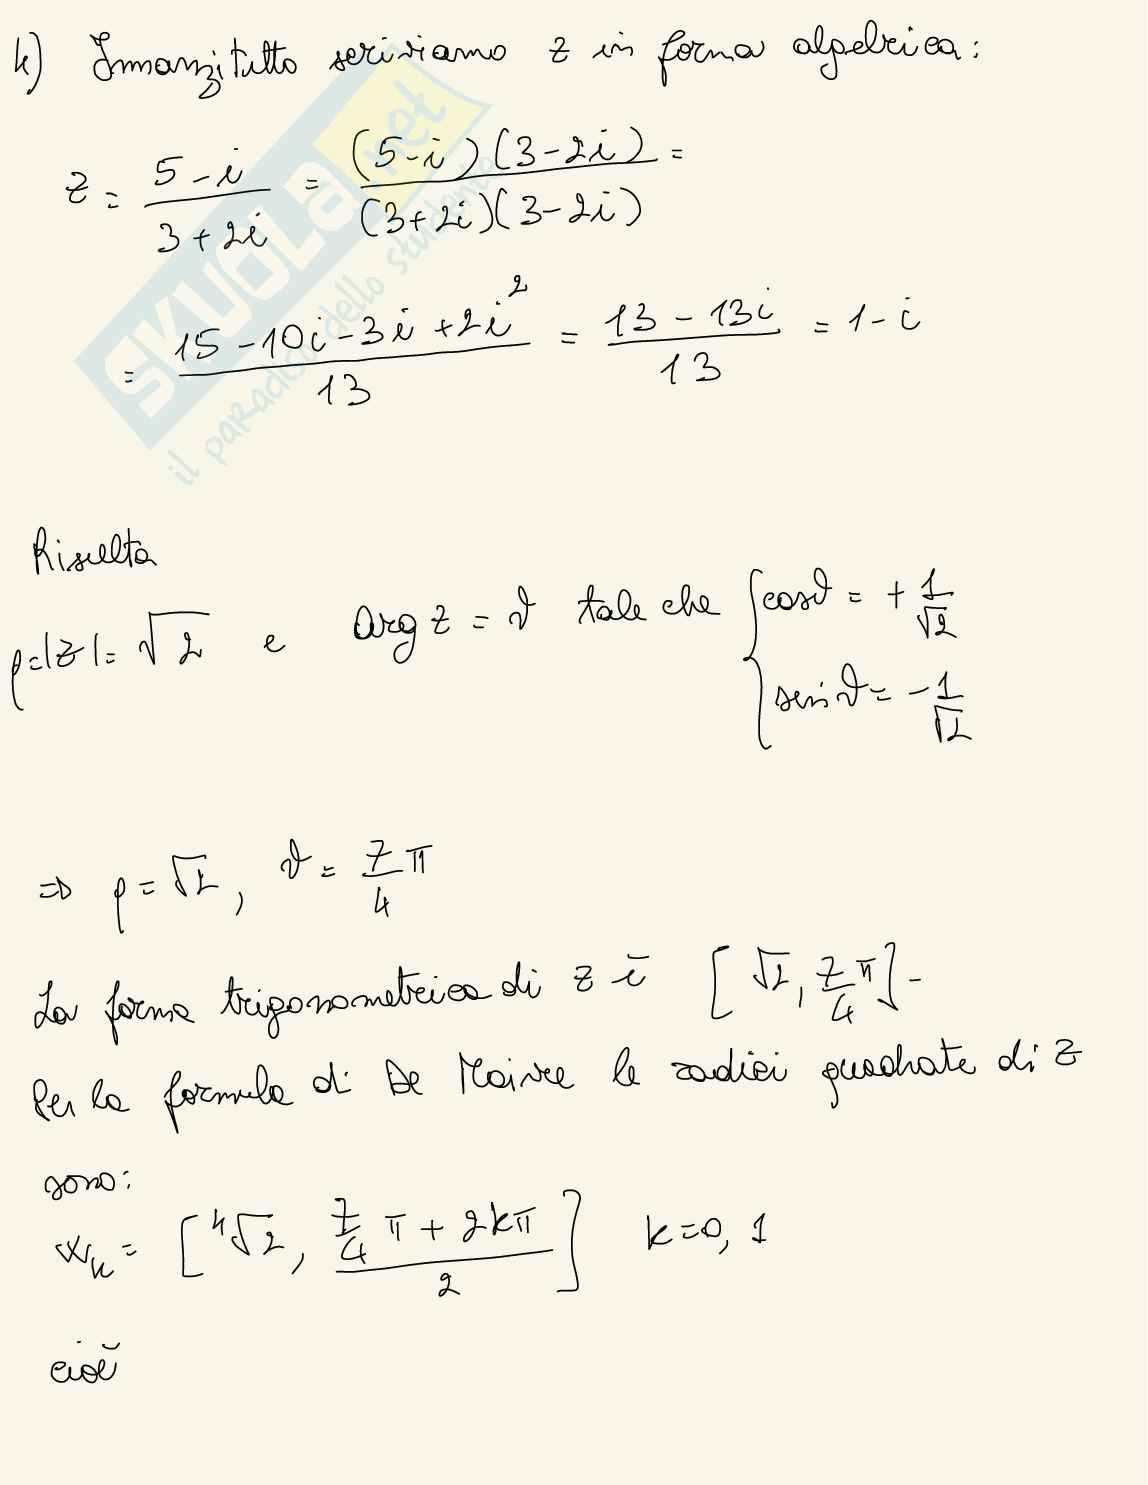 k) Innanzitutto scriviamo z in forma algebrica:
z = \frac{5-i}{3+2i} = \frac{(5-i)(3-2i)}{(3+2i)(3-2i)} =
= \frac{15-10i-3i+2i^2}{13} = \frac{13-13i}{13} = 1-i
SKUOLA.net
il paradiso dello studente
Risulta
ρ=|z|= √2 e arg z = ϑ tale che { cosϑ = + \frac{1}{√2}
sinϑ = - \frac{1}{√2}
⇒ ρ = √2, ϑ = \frac{7}{4}π
La forma trigonometrica di z è [√2, \frac{7}{4}π].
Per la formula di De Moivre le radici quadrate di z
sono:
w_k = [\sqrt[4]{2}, \frac{\frac{7}{4}π + 2kπ}{2}] k=0, 1
cioè